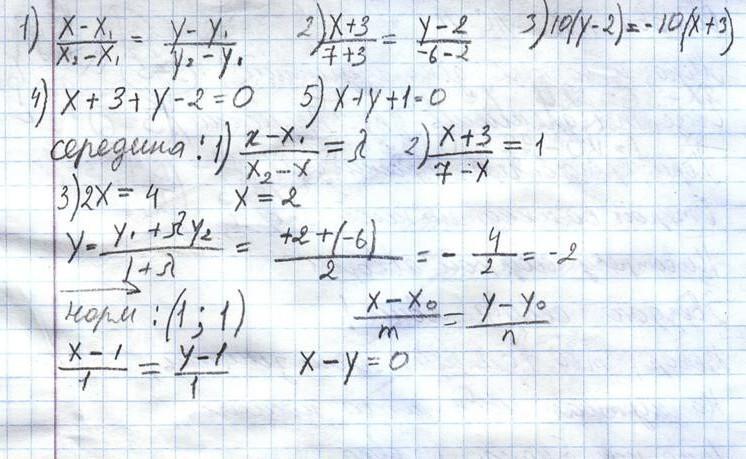 1) (x-x₁)/(x₂-x₁) = (y-y₁)/(y₂-y₁) 2) (x+3)/(7+3) = (y-2)/(-6-2) 3) 10(y-2)=-10(x+3)
4) x+3+y-2=0 5) x+y+1=0
середина: 1) (x-x₁)/(x₂-x) = λ 2) (x+3)/(7-x) = 1
3) 2x = 4 x = 2
y = (y₁+λy₂)/(1+λ) = (+2+(-6))/2 = -4/2 = -2
норм: (1; 1) (x-x₀)/m = (y-y₀)/n
(x-1)/1 = (y-1)/1 x-y=0